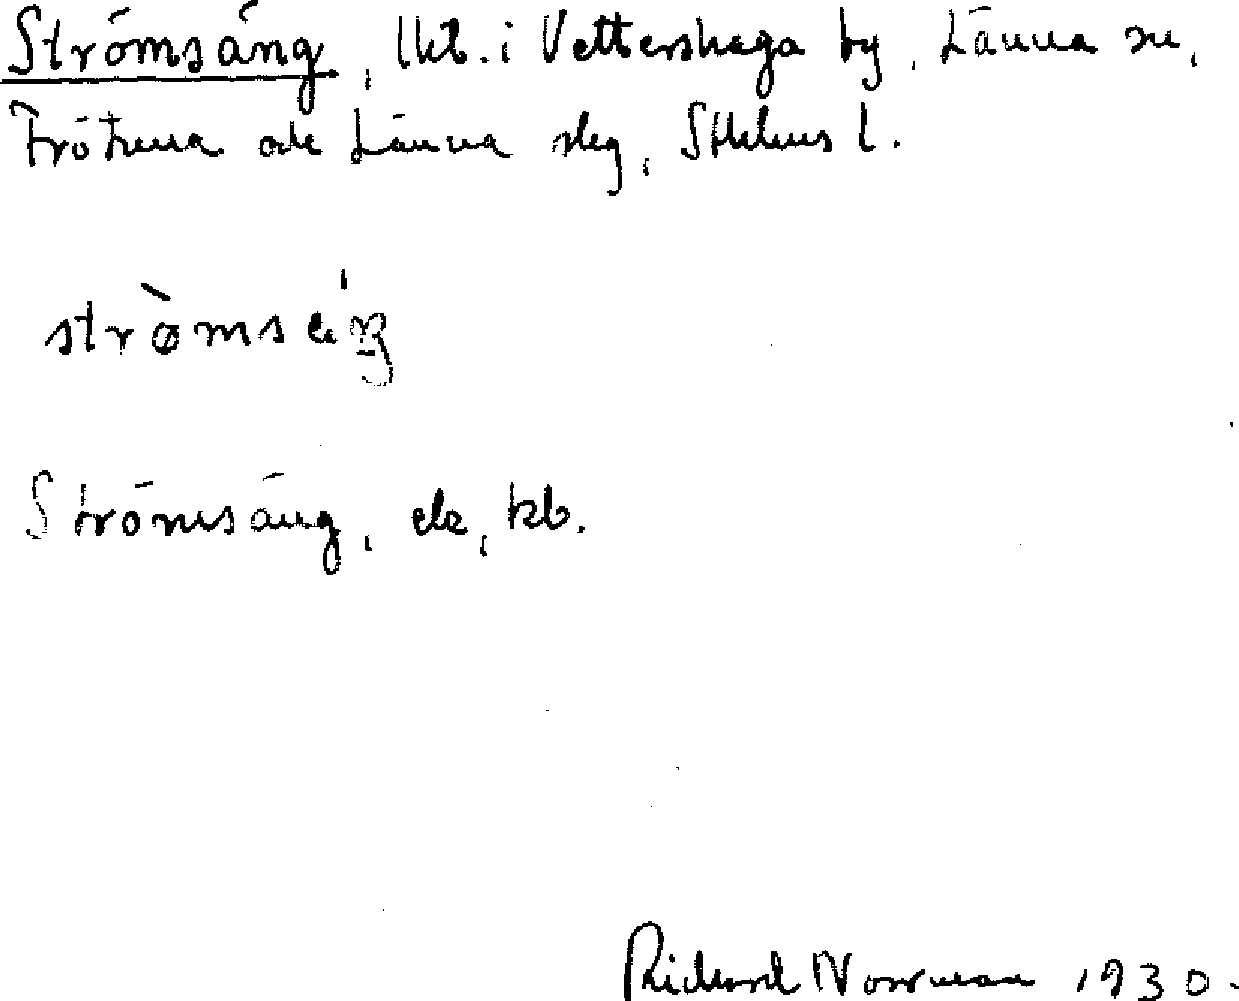 Strömsäng, lkt. i Vettershaga by, Länna sn,
Frötuna och Länna slg, Sthlms l.
strø̀msä́ŋ
Strömsäng, ek, kb.
Rickard Norrman 1930.